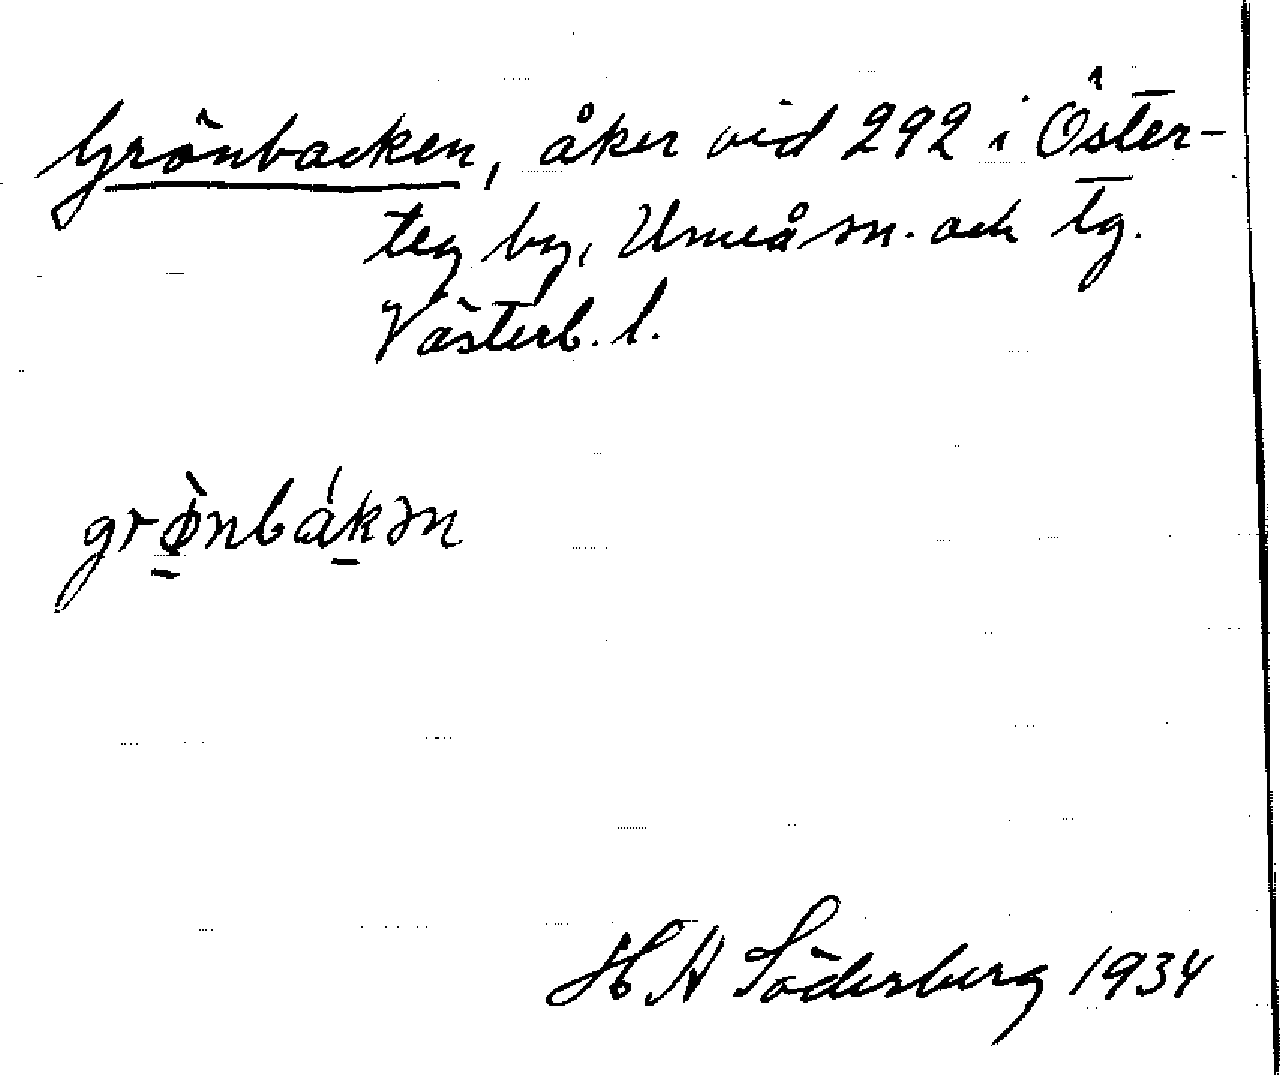 Grönbacken, åker vid 292 i Öster-
teg by, Umeå sn. och tg.
Västerb. l.
grø̀nbákən
H A Söderberg 1934